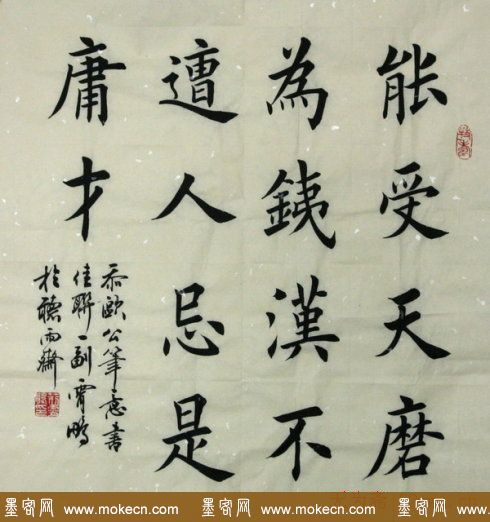 能受天磨
為銕漢不
遭人忌是
庸才
忝歐公筆意書
佳聯一副霄鵬
於聽雨齋
墨客网 www.mokecn.com 墨客网 www.mokecn.com 墨客网 www.mokecn.com